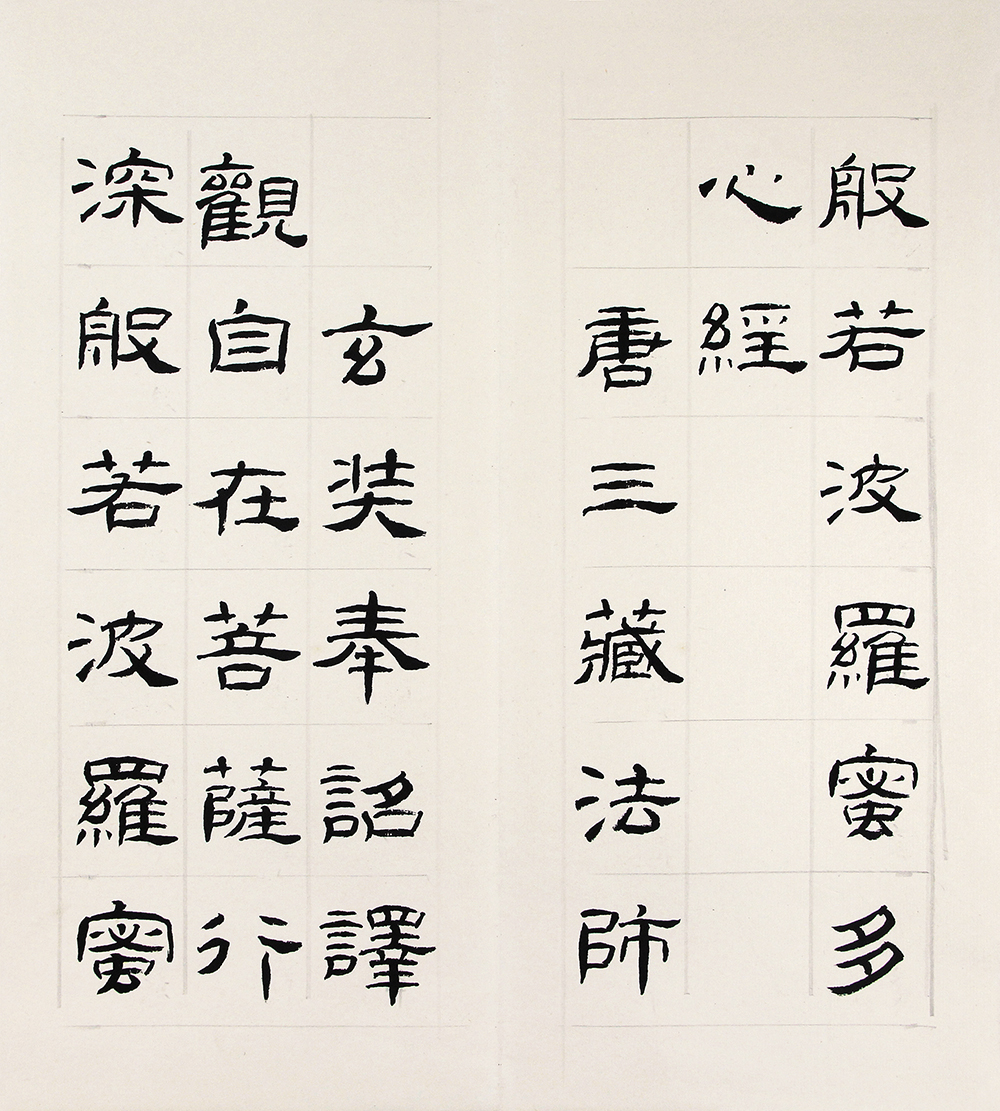 般若波羅蜜多
心經
唐三藏法師
玄奘奉詔譯
觀自在菩薩行
深般若波羅蜜